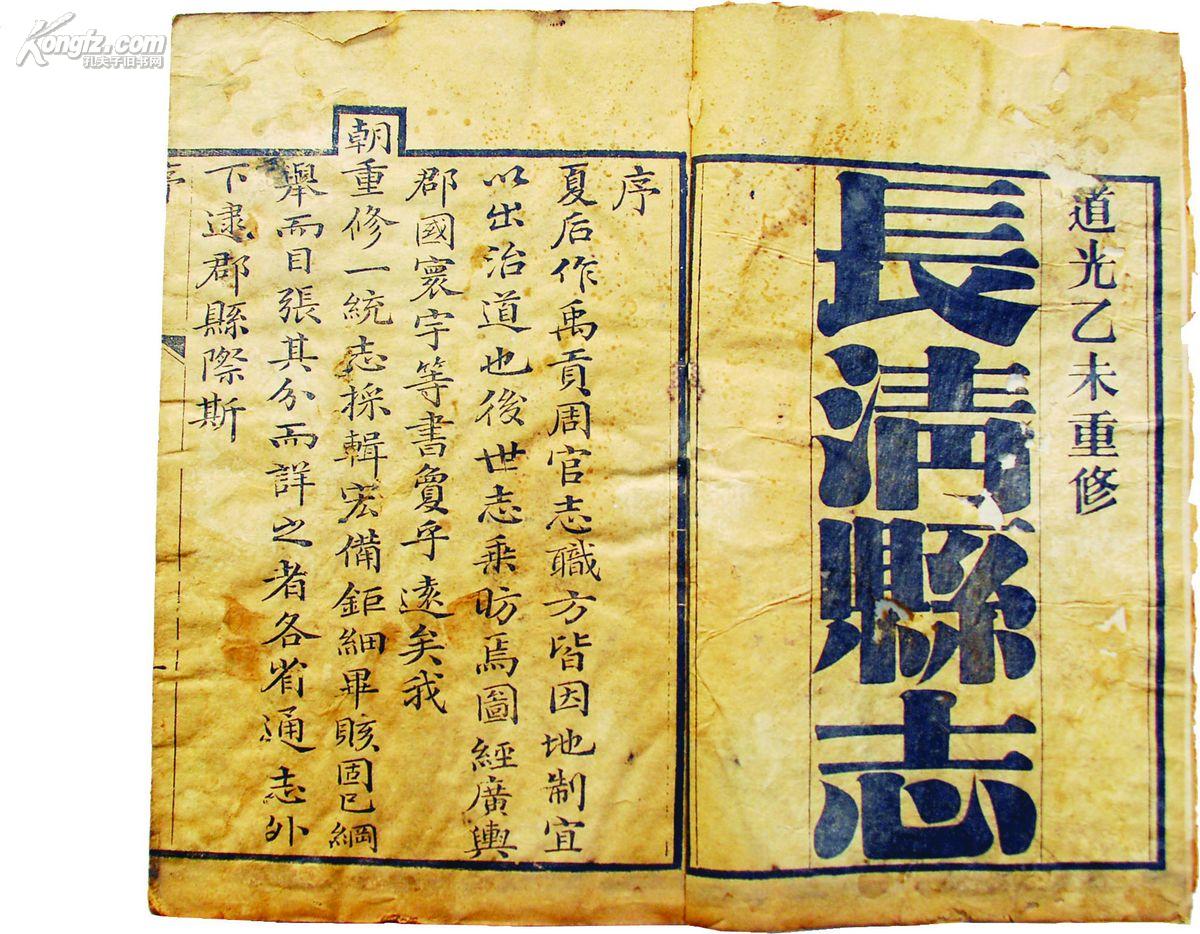 Kongfz.com
孔夫子旧书网
道光乙未重修
長清縣志
序
夏后作禹貢周官志職方皆因地制宜
以出治道也後世志乘昉焉圖經廣輿
郡國寰宇等書敻乎遠矣我
朝重修一統志採輯宏備鉅細畢賅固已綱
舉而目張其分而詳之者各省通志外
下逮郡縣際斯
序